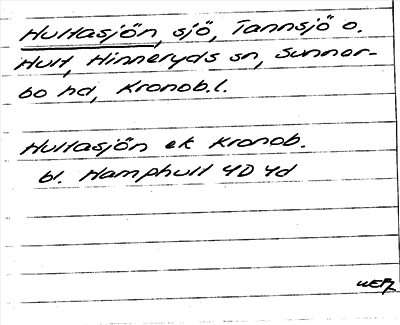 Hultasjön, sjö, Tannsjö o.
Hult, Hinneryds sn, Sunner-
bo hd, Kronob.l.
Hultasjön ek Kronob.
bl. Hamphult 4D 4d